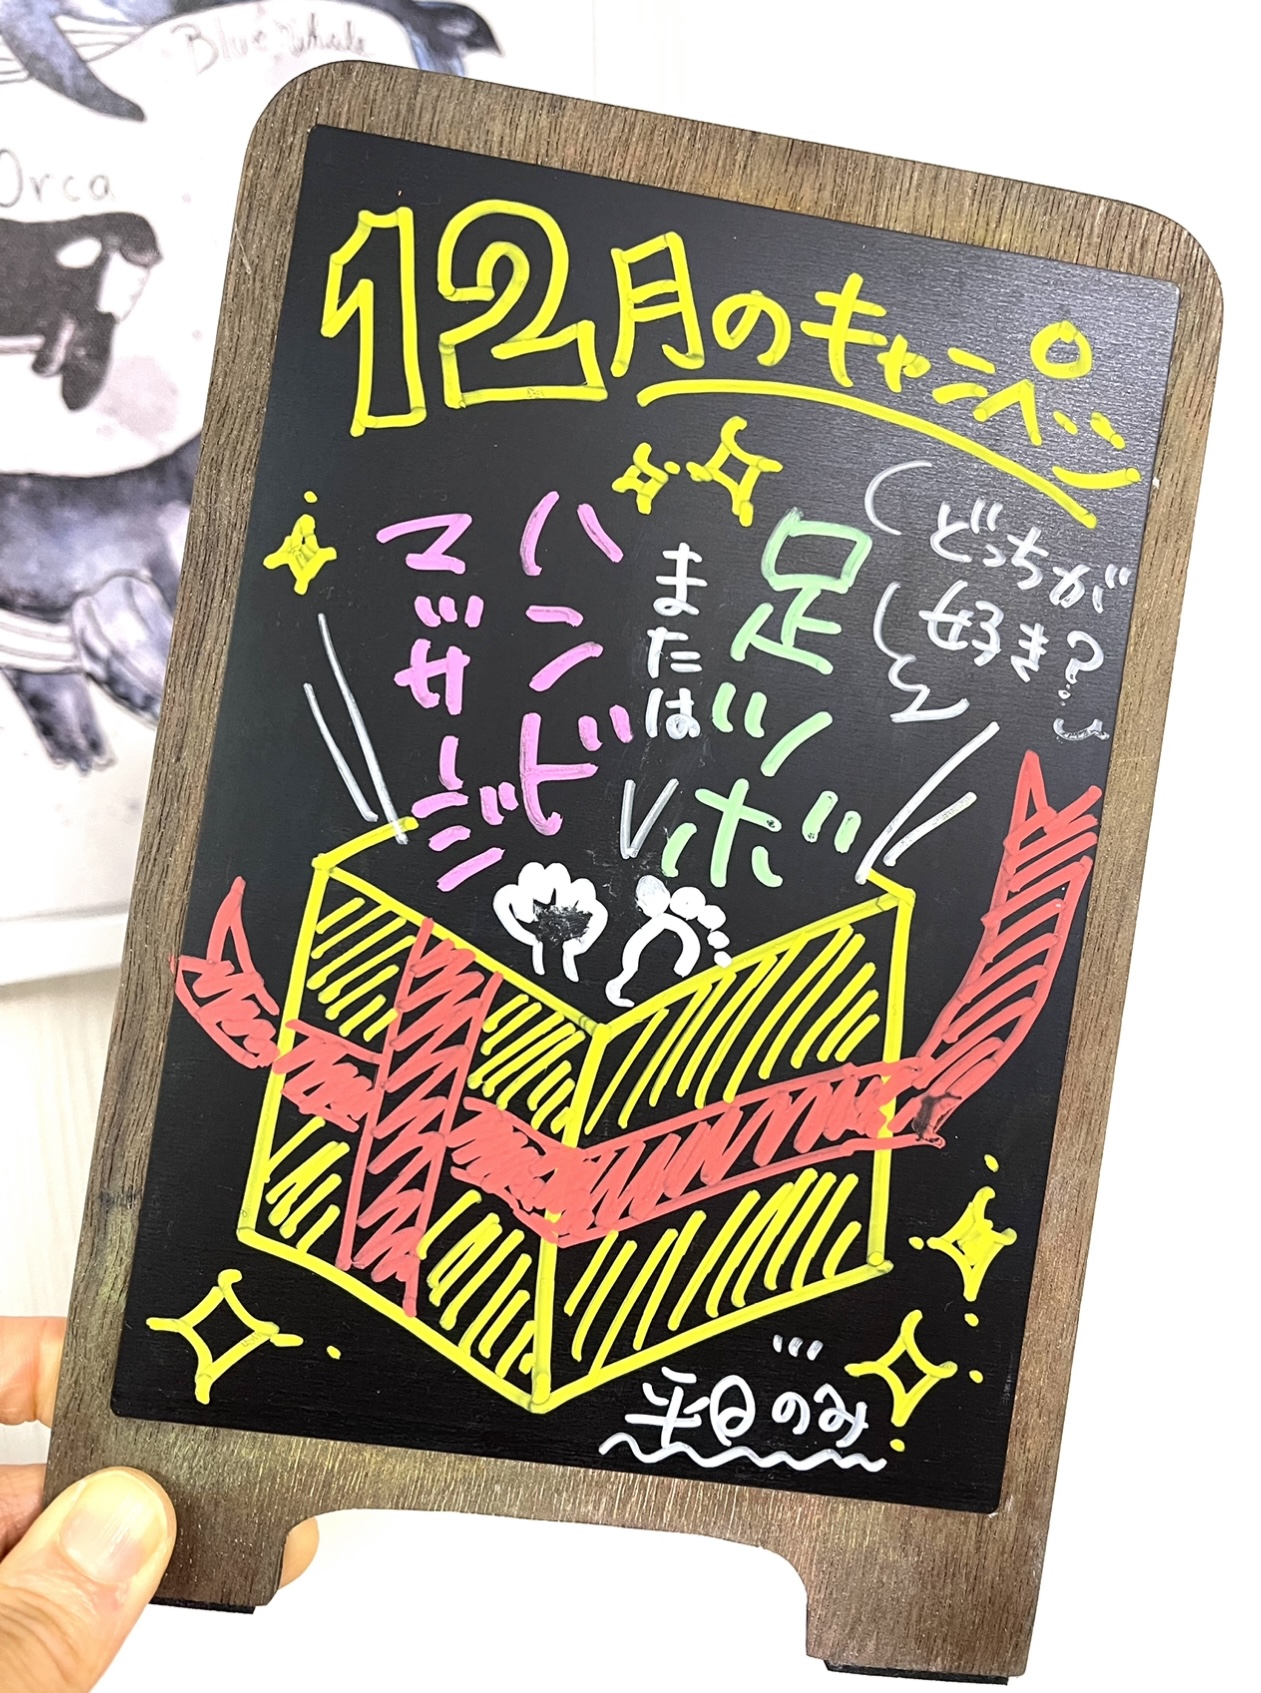 Blue Whale
Orca
12月のキャンペーン
どっちが
好き?
足ツボ
または
ハンド
マッサージ
平日のみ